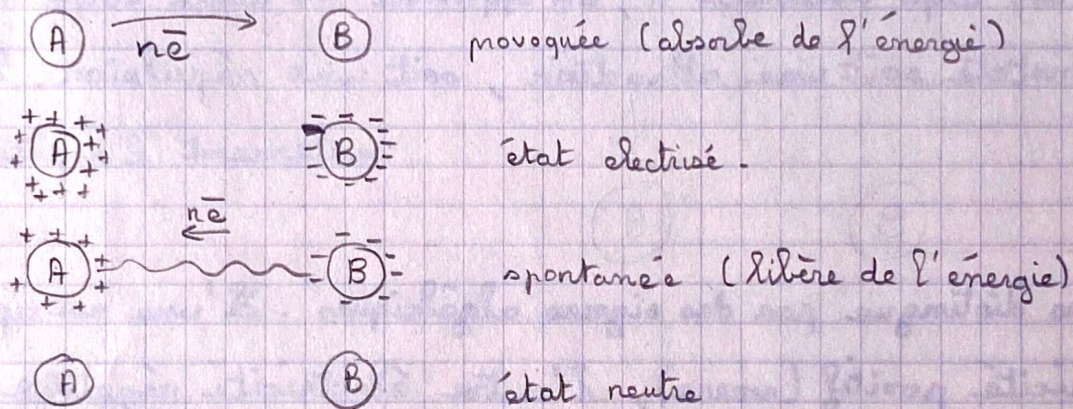 A nē B provoquée (absorbe de l'énergie)
+ + + + + + + + + + + + + + A - - - - - - - - - - - - B état electrisé.
nē
+ + + + + + + + + + A - - - - - - - - B spontanée (libère de l'énergie)
A B état neutre